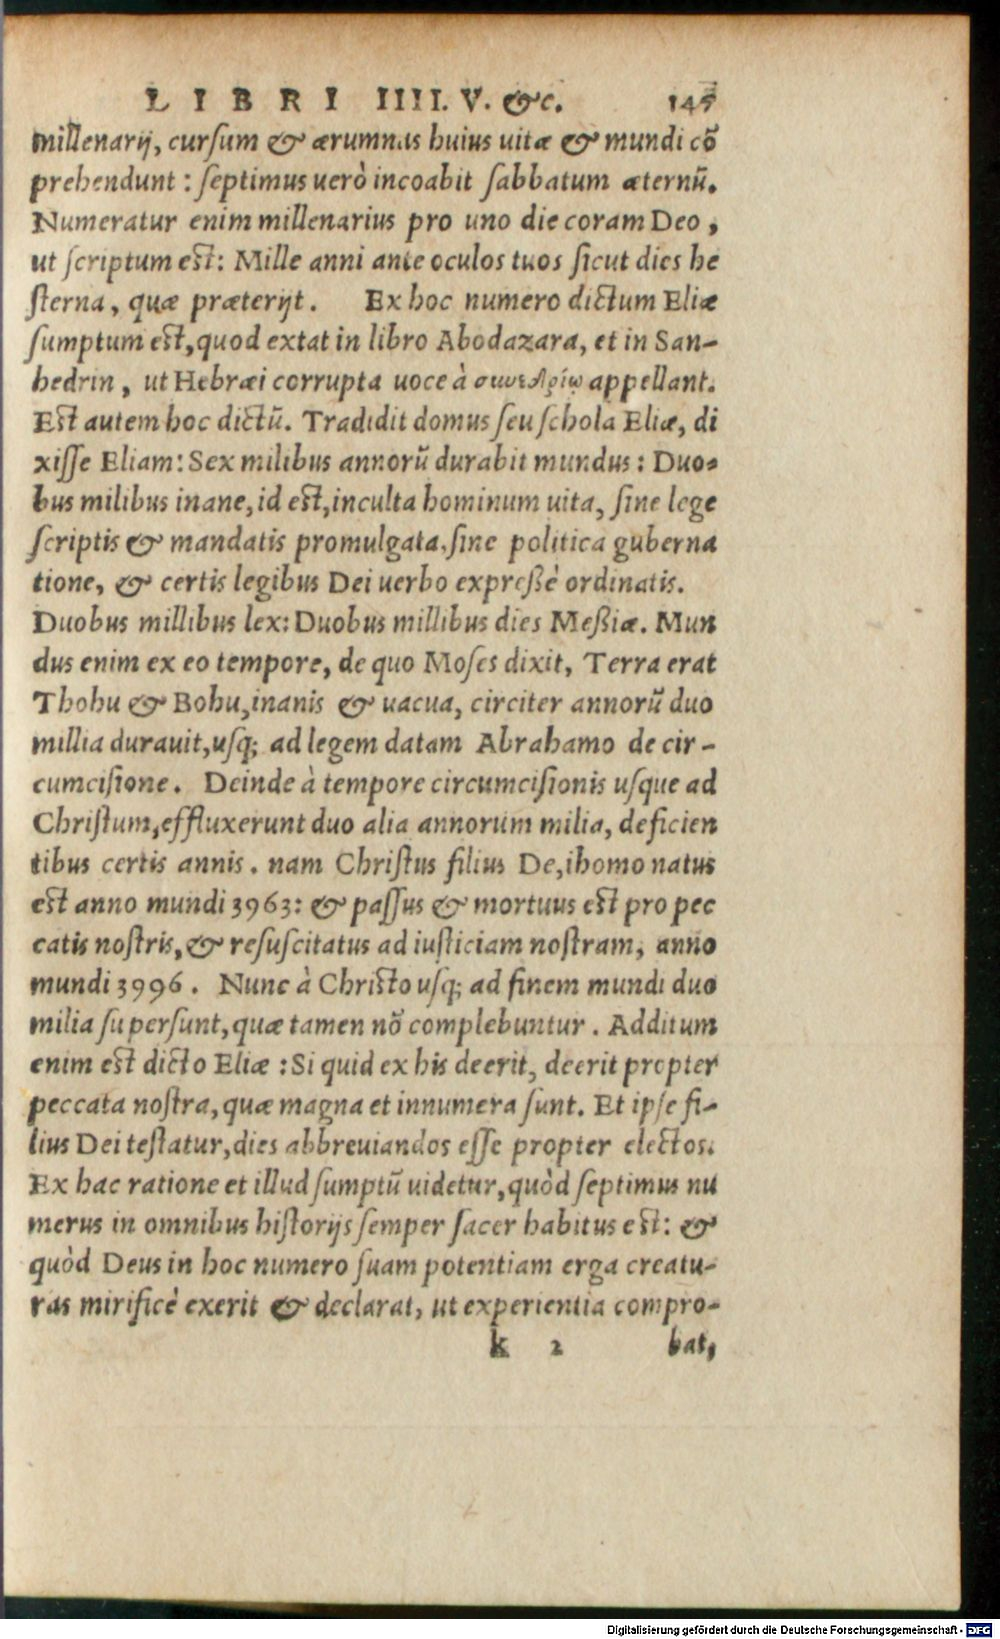 LIBRI IIII. V. &c. 147
millenarij, cursum & ærumnas huius uitæ & mundi cō
prehendunt: septimus uerò incoabit sabbatum æternū.
Numeratur enim millenarius pro uno die coram Deo,
ut scriptum est: Mille anni ante oculos tuos sicut dies he
sterna, quæ præterijt. Ex hoc numero dictum Eliæ
sumptum est, quod extat in libro Abodazara, et in San-
hedrin, ut Hebræi corrupta uoce à συνεδρίῳ appellant.
Est autem hoc dictū. Tradidit domus seu schola Eliæ, di
xisse Eliam: Sex milibus annorū durabit mundus: Duo-
bus milibus inane, id est, inculta hominum uita, sine lege
scriptis & mandatis promulgata, sine politica guberna
tione, & certis legibus Dei uerbo expreßè ordinatis.
Duobus millibus lex: Duobus millibus dies Meßiæ. Mun
dus enim ex eo tempore, de quo Moses dixit, Terra erat
Thohu & Bohu, inanis & uacua, circiter annorū duo
millia durauit, usq; ad legem datam Abrahamo de cir-
cumcisione. Deinde à tempore circumcisionis usque ad
Christum, effluxerunt duo alia annorum milia, deficien
tibus certis annis. nam Christus filius De, ihomo natus
est anno mundi 3963: & passus & mortuus est pro pec
catis nostris, & resuscitatus ad iusticiam nostram, anno
mundi 3996. Nunc à Christo usq; ad finem mundi duo
milia supersunt, quæ tamen nō complebuntur. Additum
enim est dicto Eliæ: Si quid ex his deerit, deerit propter
peccata nostra, quæ magna et innumera sunt. Et ipse fi-
lius Dei testatur, dies abbreuiandos esse propter electos.
Ex hac ratione et illud sumptū uidetur, quòd septimus nu
merus in omnibus historijs semper sacer habitus est: &
quòd Deus in hoc numero suam potentiam erga creatu-
ras mirificè exerit & declarat, ut experientia compro-
k 2 bat,
Digitalisierung gefördert durch die Deutsche Forschungsgemeinschaft - DFG